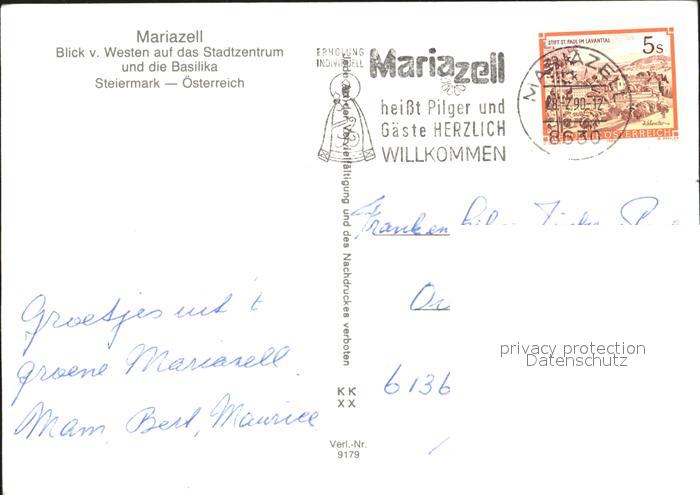 Mariazell
Blick v. Westen auf das Stadtzentrum
und die Basilika
Steiermark — Österreich
ERHOLUNG
INDIVIDUELL
Mariazell
heißt Pilger und
Gäste HERZLICH
WILLKOMMEN
MARIAZELL
90-12
8630
STIFT ST. PAUL IM LAVANTTAL
5s
REPUBLIK ÖSTERREICH
Jede Art der Vervielfältigung und des Nachdruckes verboten
Groetjes uit 't
groene Mariazell
Mam, Bert, Maurice
6136
privacy protection
Datenschutz
KK
XX
Verl.-Nr.
9179